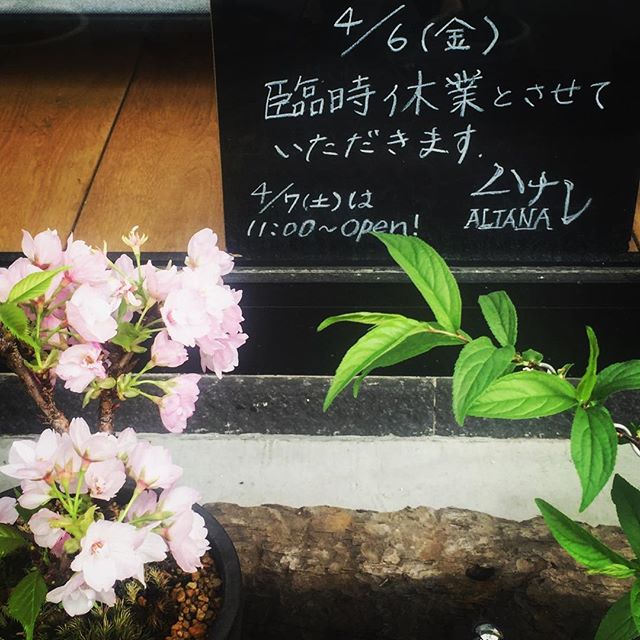 4/6(金)
臨時休業とさせて
いただきます.
4/7(土)は
11:00~open!
ハナレ
ALTANA